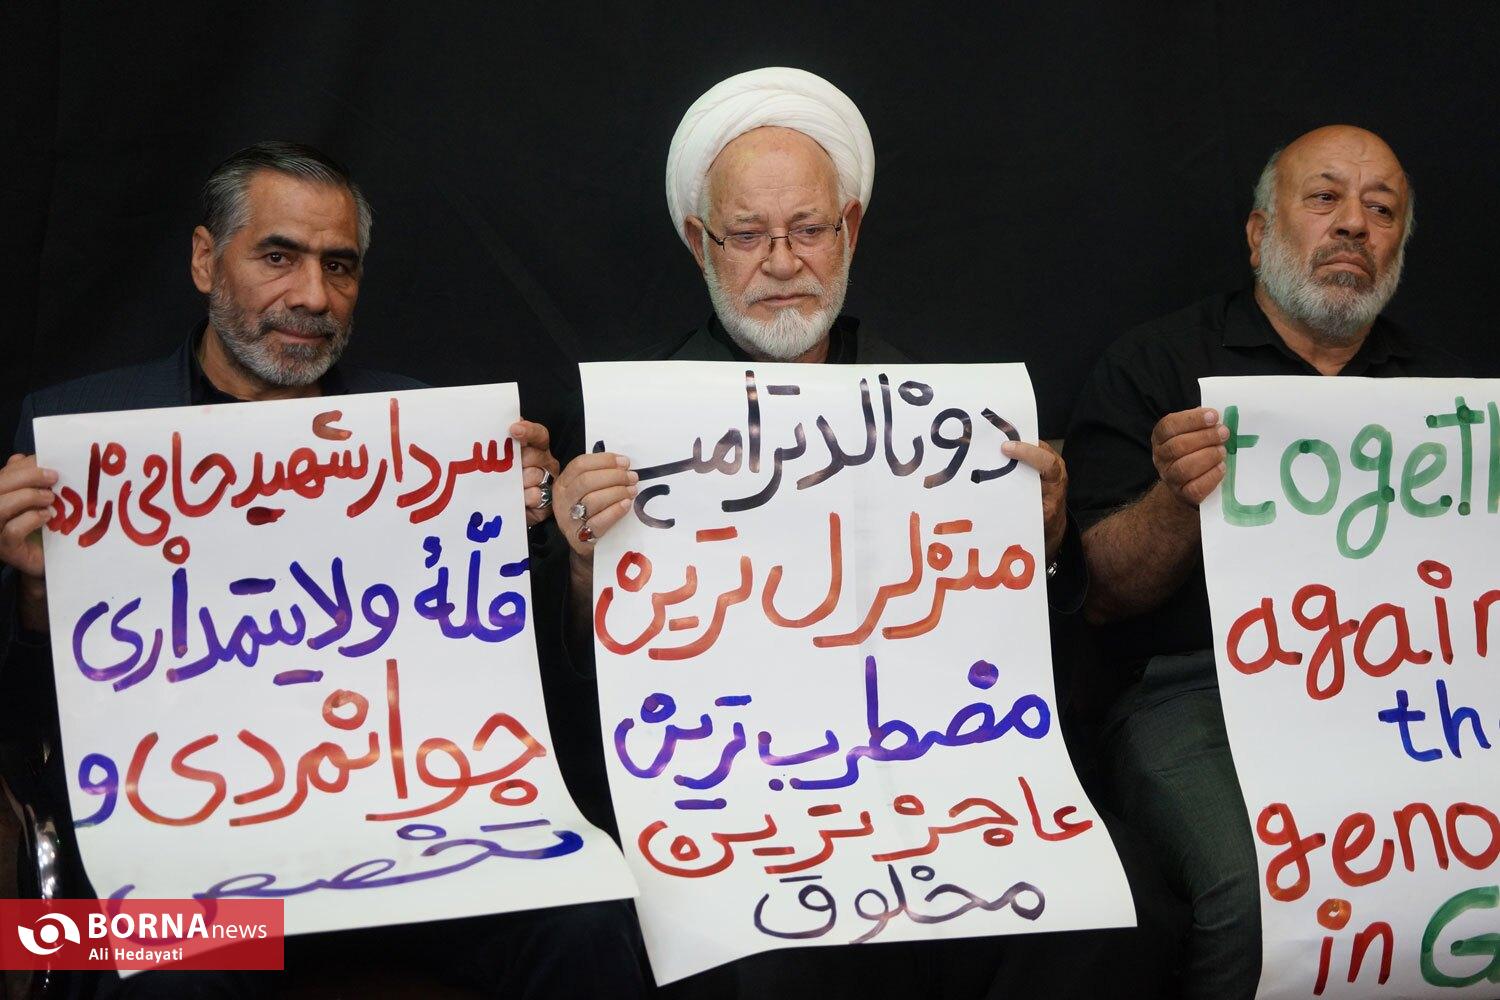 سردار شهید حاجی زاده
قلّهٔ ولایتمداری
جوانمردی و
تخصص
دونالد ترامپ
متزلزل ترین
مضطرب ترین
عاجز ترین
مخلوق
again
the
in
BORNAnews
Ali Hedayati